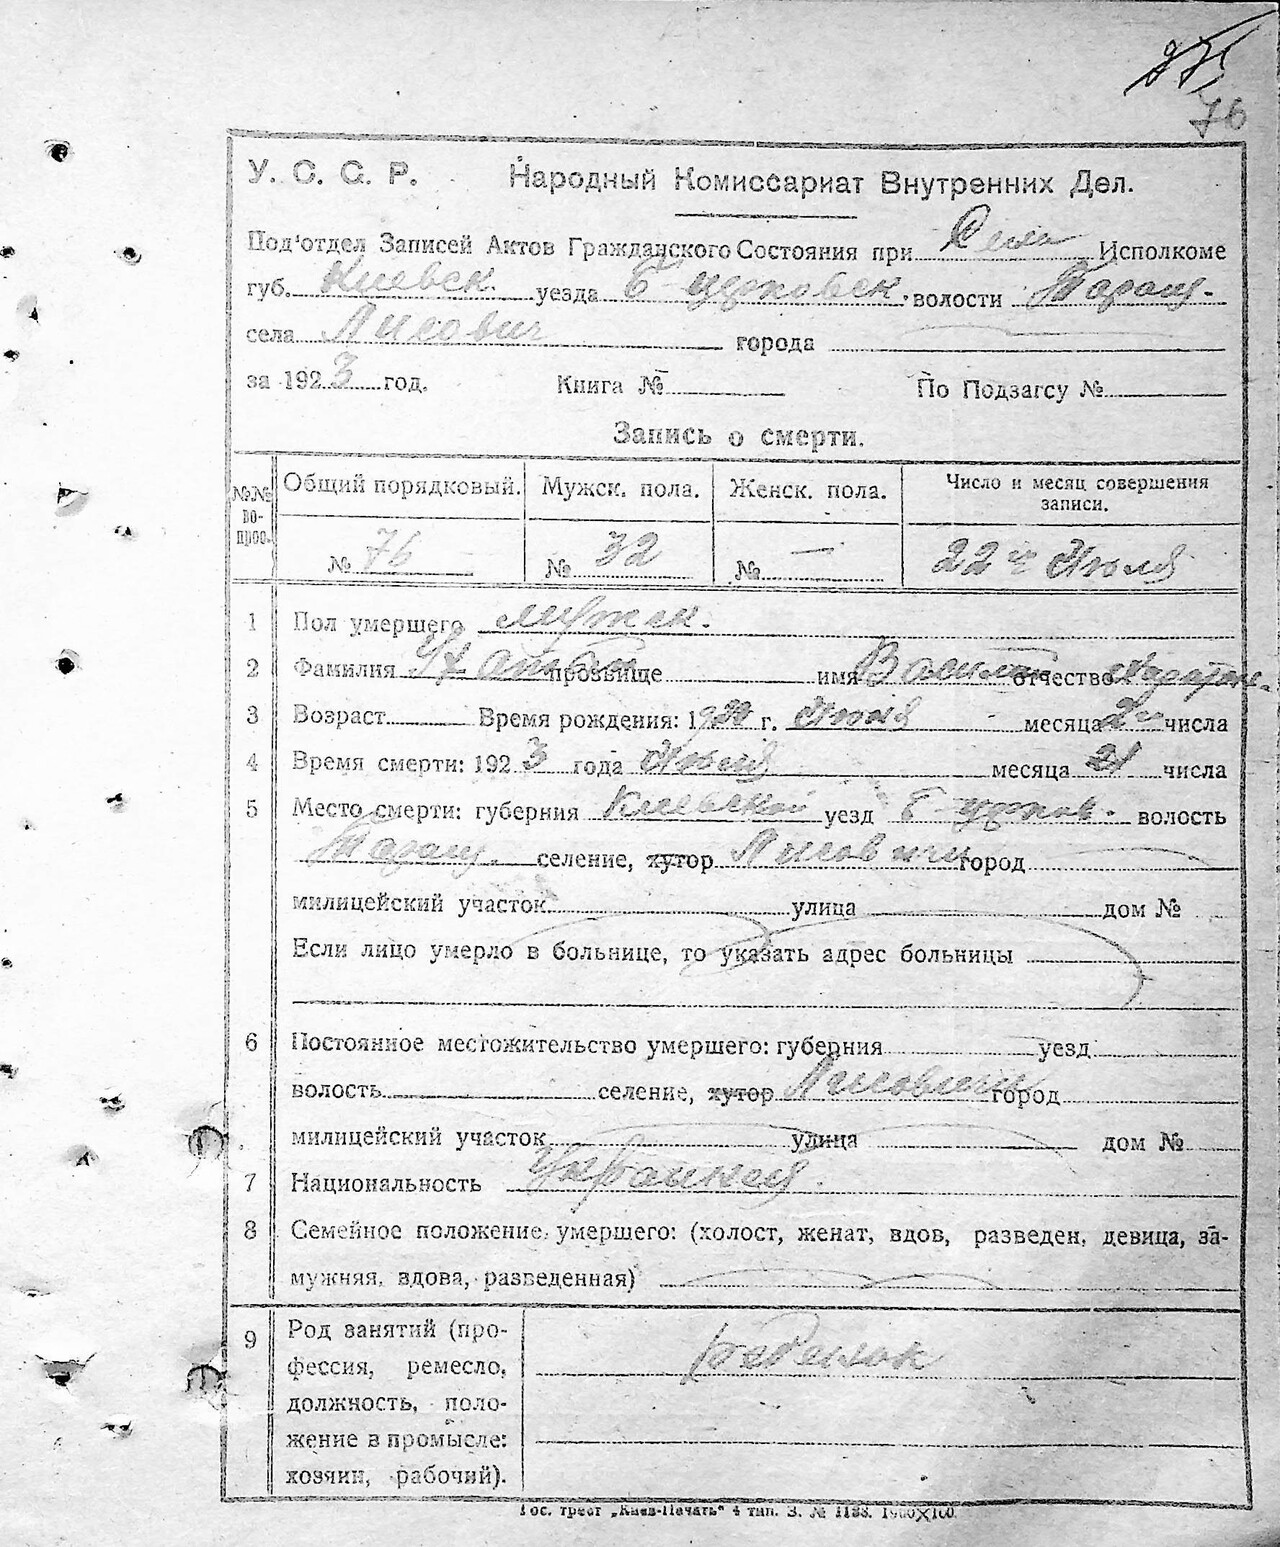 76
У. С. С. Р. Народный Комиссариат Внутренних Дел.
Под'отдел Записей Актов Гражданского Состояния при Села Исполкоме
губ. Киевск. уезда Б-церковск. волости Таращ.
села Лисович города
за 1923 год. Книга № По Подзагсу №
Запись о смерти.
№№ во-прос. Общий порядковый. Мужск. пола. Женск. пола. Число и месяц совершения записи.
№ 76 № 32 № — 22го Июля
1 Пол умершего мужск.
2 Фамилия прозвище имя Василий отчество
3 Возраст Время рождения: 19 г. месяца 2го числа
4 Время смерти: 1923 года Июля месяца 21 числа
5 Место смерти: губерния Киевской уезд Б-церков. волость
Таращ. селение, хутор Лисовичи город
милицейский участок улица дом №
Если лицо умерло в больнице, то указать адрес больницы
6 Постоянное местожительство умершего: губерния уезд
волость селение, хутор Лисовичи город
милицейский участок улица дом №
7 Национальность
8 Семейное положение умершего: (холост, женат, вдов, разведен, девица, за-
мужняя, вдова, разведенная)
9 Род занятий (про-
фессия, ремесло, ребенок
должность, поло-
жение в промысле:
хозяин, рабочий).
Гос. трест „Киев-Печать" 4 тип. З. № 1188. 1900×100.